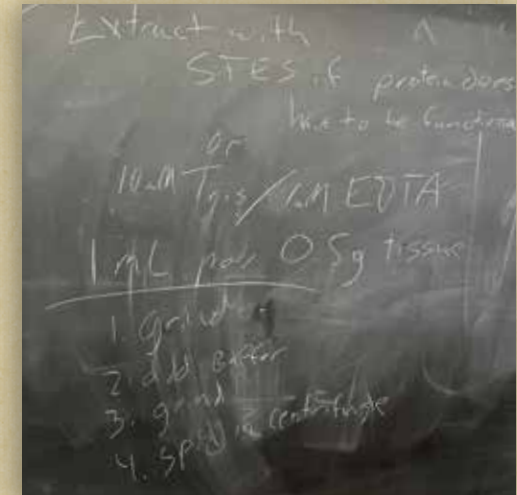 Extract with
STES if protein does
have to be functional
or
10 mM Tris / 1 mM EDTA
1 mL per 0.5g tissue
1. grind
2. add buffer
3. grind
4. spin in centrifuge